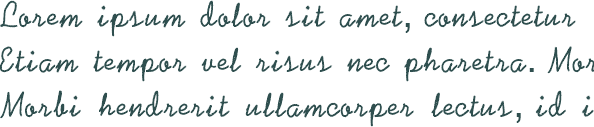 Lorem ipsum dolor sit amet, consectetur
Etiam tempor vel risus nec pharetra. Mor
Morbi hendrerit ullamcorper lectus, id i